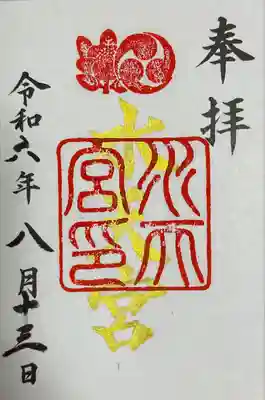 奉拝
水天宮
水天宮印
令和六年八月十三日